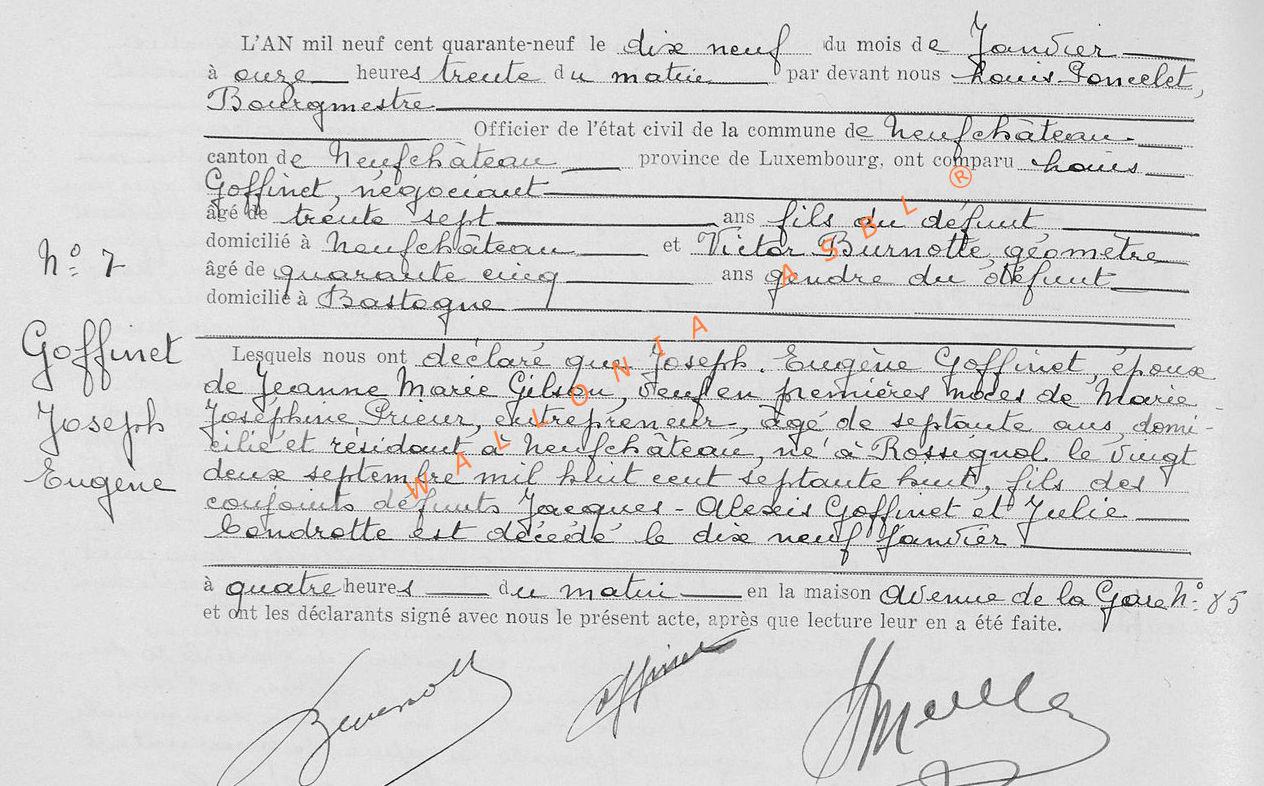 L'AN mil neuf cent quarante-neuf le dix neuf du mois de Janvier
à onze heures trente du matin par devant nous Louis Poncelet,
Bourgmestre
Officier de l'état civil de la commune de Neufchâteau
canton de Neufchâteau province de Luxembourg, ont comparu Louis
Goffinet, négociant
âgé de trente sept ans fils du défunt
domicilié à Neufchâteau et Victor Burnotte, géomètre
âgé de quarante cinq ans gendre du défunt
domicilié à Bastogne
N° 7
Goffinet
Joseph
Eugène
Lesquels nous ont déclaré que Joseph. Eugène Goffinet, époux
de Jeanne Marie Gilson, veuf en premières noces de Marie
Joséphine Prieur, entrepreneur, âgé de septante ans, domi-
cilié et résidant à Neufchâteau, né à Rossignol le vingt
deux septembre mil huit cent septante huit, fils des
conjoints défunts Jacques-Alexis Goffinet et Julie
Condrotte est décédé le dix neuf Janvier
à quatre heures du matin en la maison Avenue de la Gare N° 85
et ont les déclarants signé avec nous le présent acte, après que lecture leur en a été faite.
Goffinet
WALLONIA ASBL ®